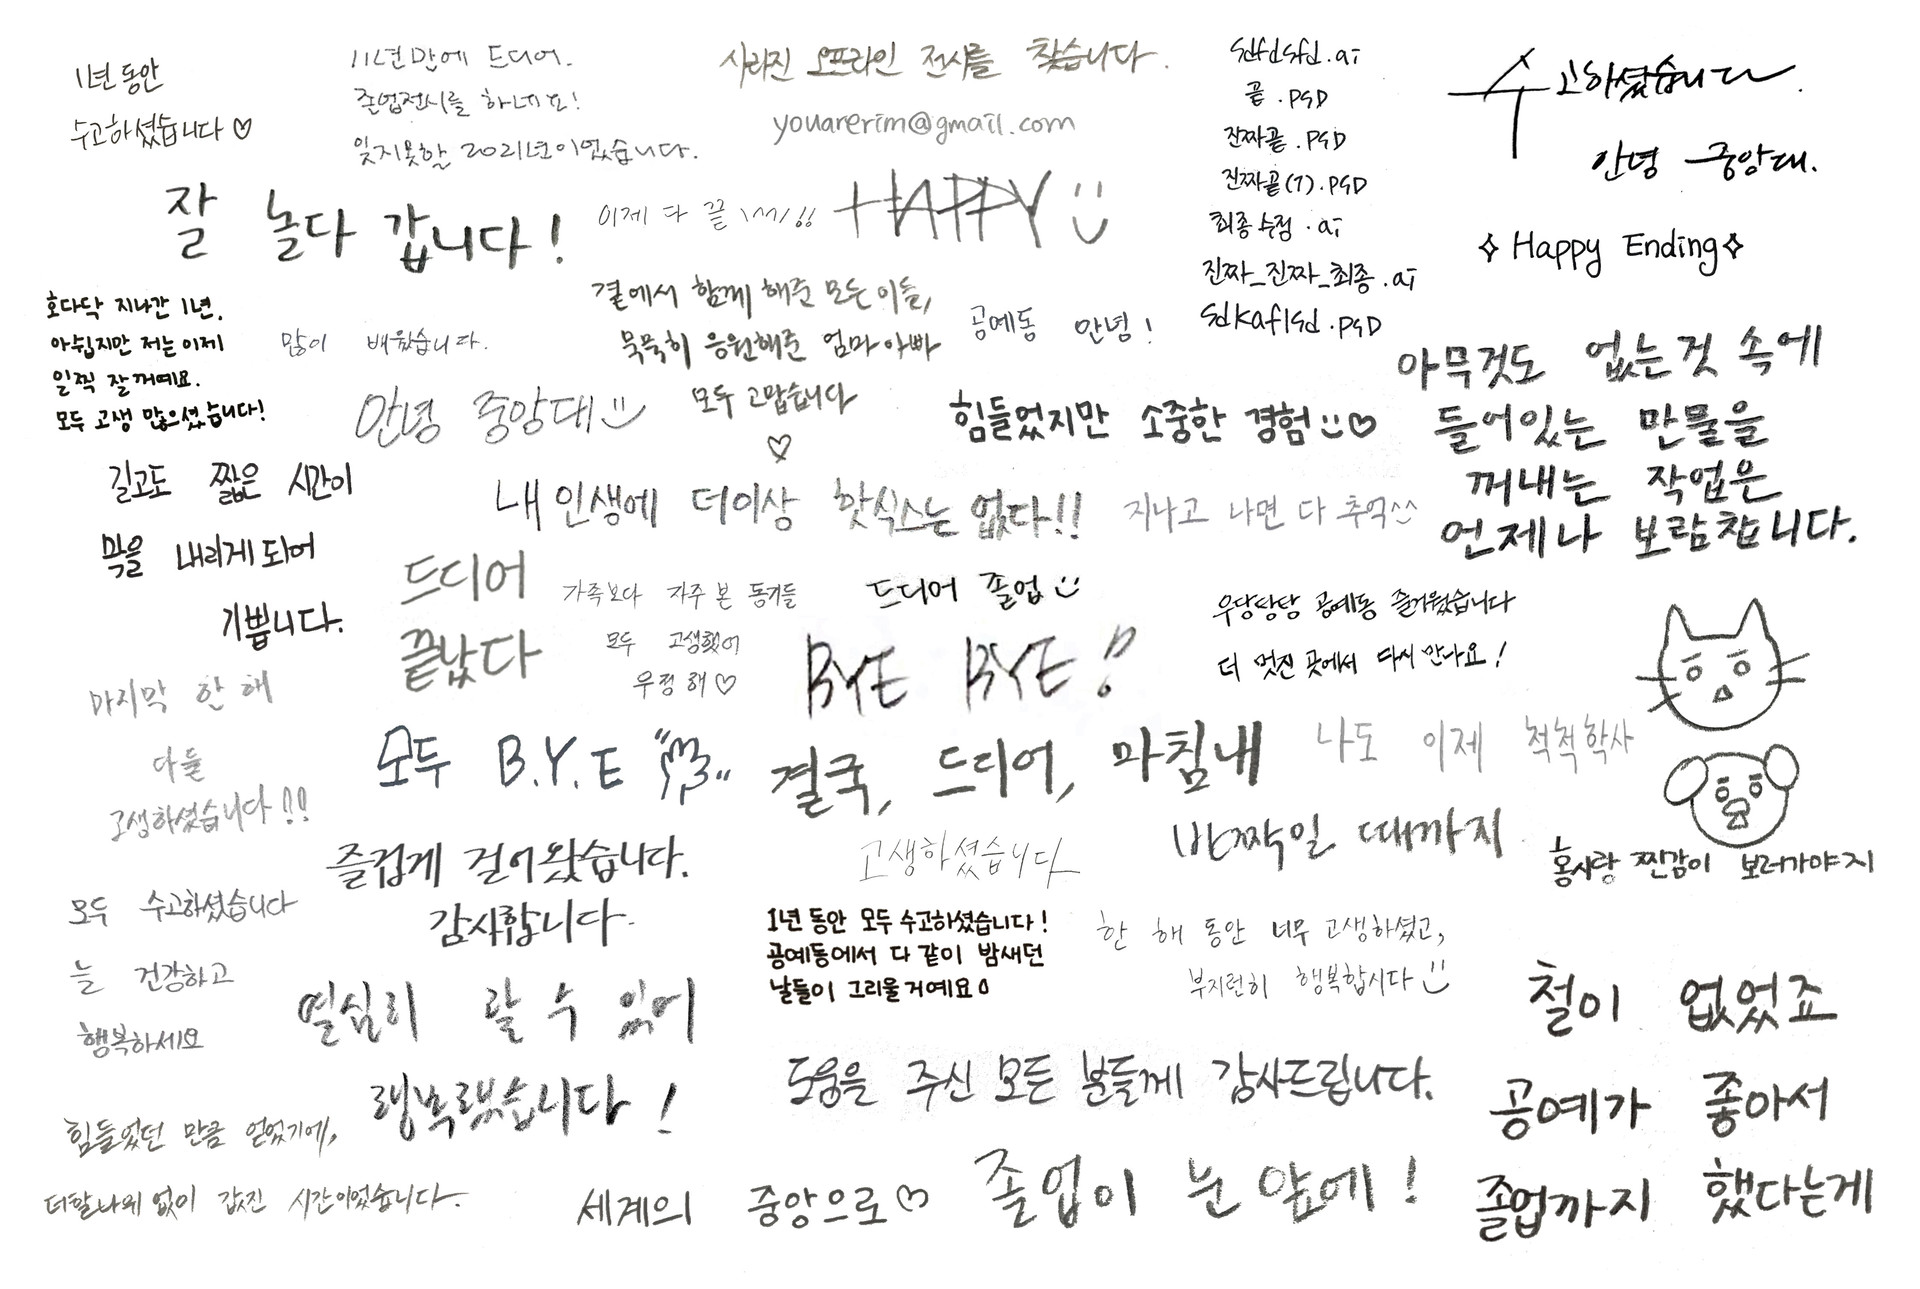 1년 동안
수고하셨습니다♡
11년만에 드디어.
졸업전시를 하네요!
잊지못할 2021년이였습니다.
사라진 오프라인 전시를 찾습니다.
youarerim@gmail.com
sdfdsfd.ai
끝.PSD
진짜끝.PSD
진짜끝(1).PSD
최종수정.ai
진짜_진짜_최종.ai
sdkaflsd.PSD
수고하셨습니다.
안녕 중앙대.
잘 놀다 갑니다!
이제 다 끝
HAPPY
✧ Happy Ending ✧
호다닥 지나간 1년.
아쉽지만 저는 이제
일찍 잘꺼예요.
모두 고생 많으셨습니다!
많이 배웠습니다.
곁에서 함께 해준 모든이들,
묵묵히 응원해준 엄마아빠
모두 고맙습니다
♡
공예동 안녕!
안녕 중앙대
힘들었지만 소중한 경험 ♡
아무것도 없는것 속에
들어있는 만물을
꺼내는 작업은
언제나 보람찹니다.
길고도 짧은 시간이
막을 내리게되어
기쁩니다.
내 인생에 더이상 핫식스는 없다!!
지나고 나면 다 추억^^
드디어
끝났다
가족보다 자주 본 동기들
모두 고생했어
우정해♡
드디어 졸업
BYE BYE!
우당탕탕 공예동 즐거웠습니다
더 멋진 곳에서 다시 만나요!
마지막 한 해
다들
고생하셨습니다!!
모두 B.Y.E
결국, 드디어, 마침내
나도 이제 척척학사
즐겁게 걸어왔습니다.
감사합니다.
고생하셨습니다
반짝일 때까지
홍사랑 찐감이 보러가야지
모두 수고하셨습니다
늘 건강하고
행복하세요
1년 동안 모두 수고하셨습니다!
공예동에서 다 같이 밤새던
날들이 그리울거예요
한 해 동안 너무 고생하셨고,
부지런히 행복합시다
열심히 할 수 있어
행복했습니다!
철이 없었죠
공예가 좋아서
졸업까지 했다는게
도움을 주신 모든 분들께 감사드립니다.
힘들었던 만큼 얻었기에,
더할나위없이 값진 시간이었습니다.
세계의 중앙으로♡
졸업이 눈 앞에!